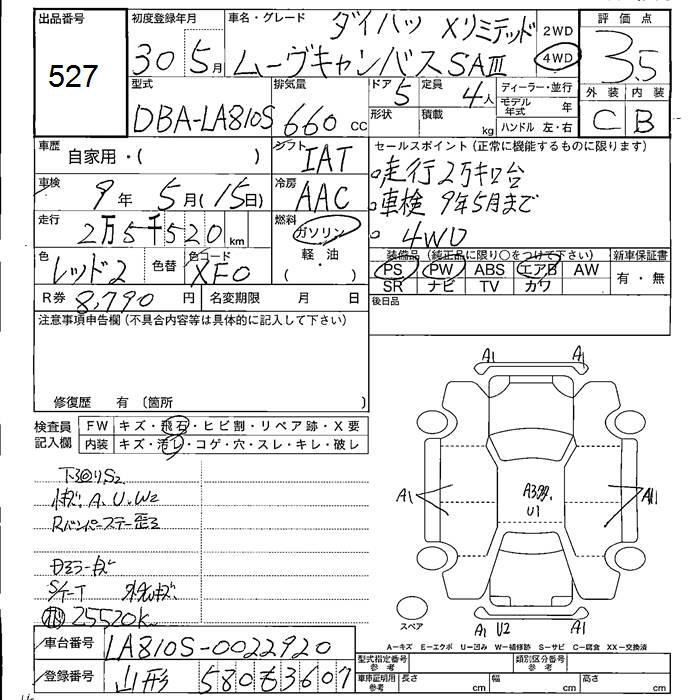 出品番号 初度登録年月 車名・グレード ダイハツ Xリミテッド 2WD 評価点
527 30 5月 ムーヴキャンバス SAⅢ 4WD 3.5
型式 排気量 ドア 定員 ディーラー・並行 外装 内装
DBA-LA810S 660 cc 5 4人 モデル年式 年 C B
形状 積載 kg ハンドル 左・右
車歴 自家用・( ) シフト IAT セールスポイント(正常に機能するものに限ります)
車検 9年 5月(15日) 冷房 AAC
走行2万キロ台
車検 9年5月まで
4WD
走行 2万5千520km 燃料 ガソリン 軽・油 ( )
装備品(純正品に限り○をつけて下さい) 新車保証書
色 レッド2 色替 色コード XF0
PS PW ABS エアB AW 有・無
SR ナビ TV カワ
R券 8,790円 名変期限 月 日 後日品
注意事項申告欄(不具合内容等は具体的に記入して下さい)
修復歴 有 〔箇所 〕
検査員記入欄 FW キズ・飛石・ヒビ割・リペア跡・X要
内装 キズ・汚レ・コゲ・穴・スレ・キレ・破レ
下回りS2
A.U.W2
Rバンパーステー歪ミ
S/T-T
25520K
A1 A1
A1 U1 A1
A1 U2 A1
スペア
A-キズ E-エクボ U-凹み W-補修跡 S-サビ C-腐食 XX-交換済
車台番号 LA810S-0022920 型式指定番号 参考 類別区分番号 参考
登録番号 山形 580 も 3607 車庫証明用 参考 長さ cm 幅 cm 高さ cm